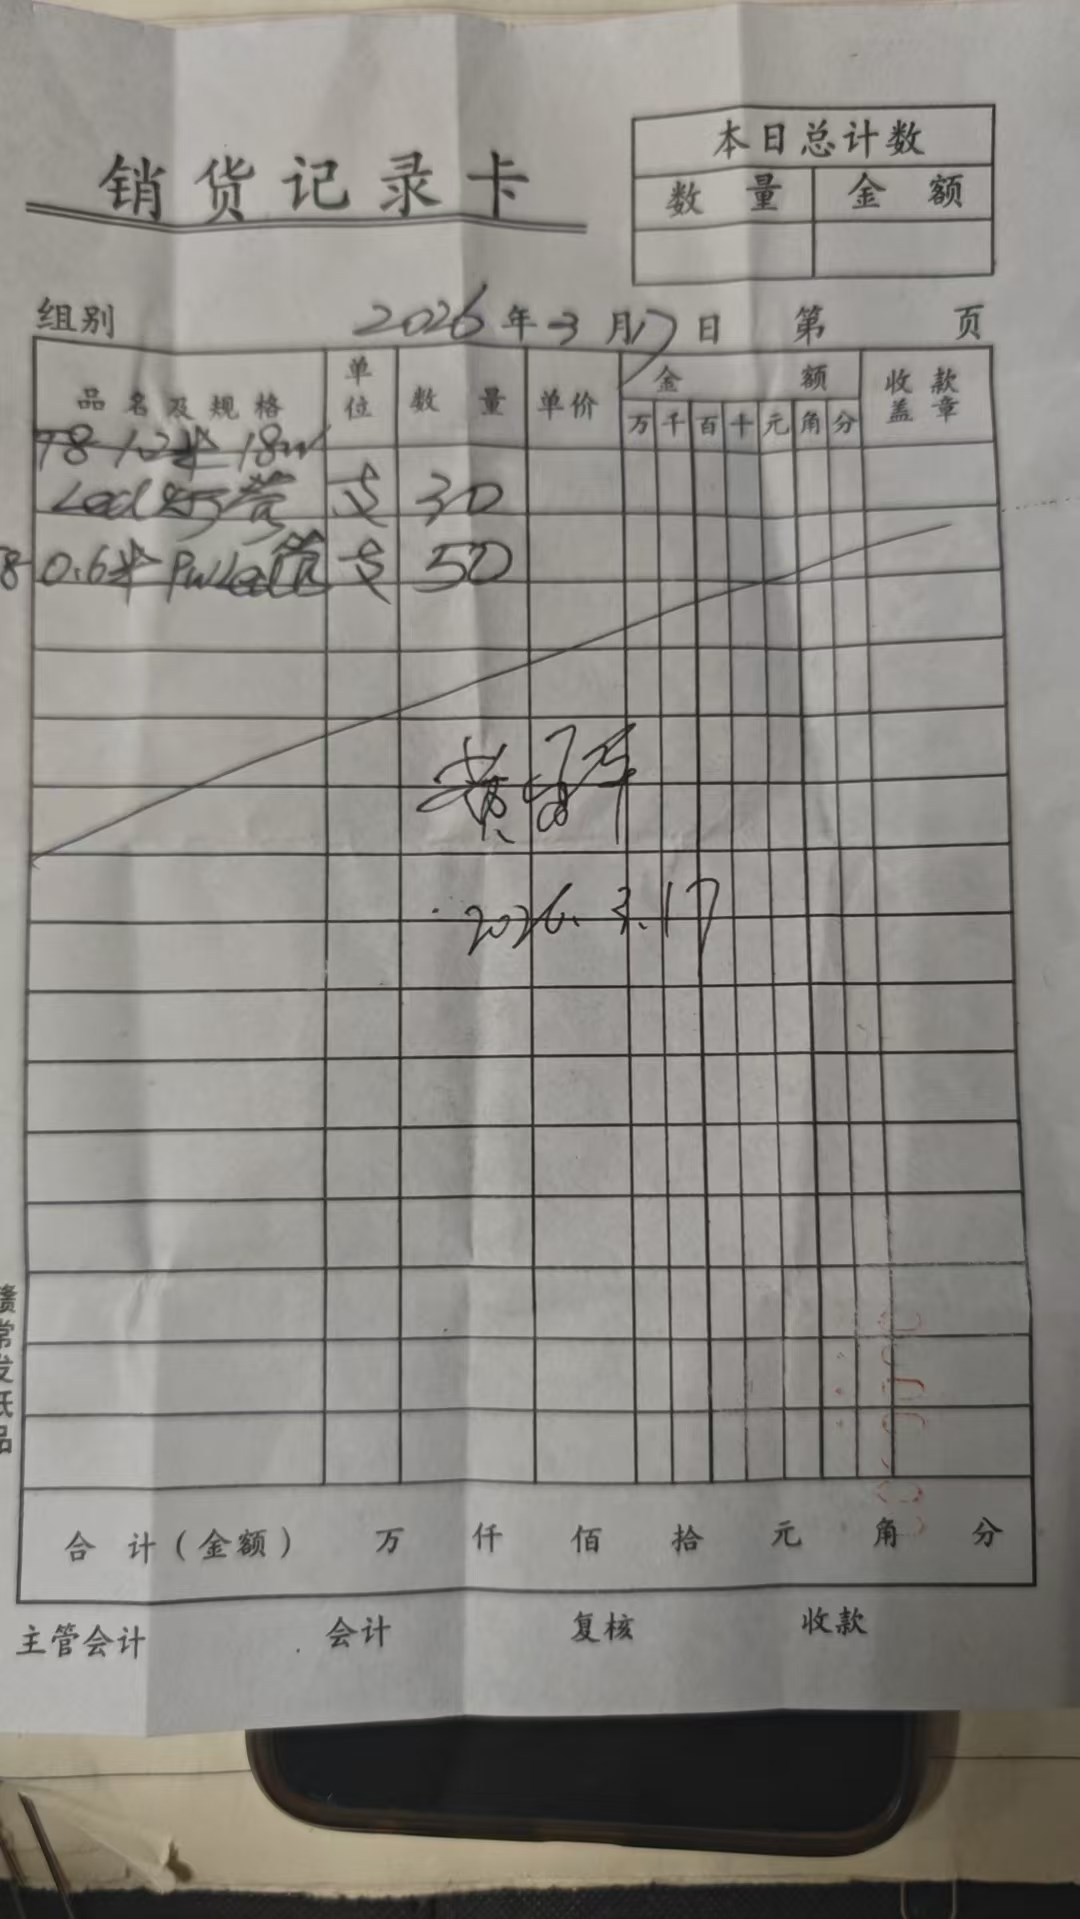 本日总计数
销货记录卡
数量 金额
组别 2026年3月17日 第 页
品名及规格 单位 数量 单价 金额 收款盖章
万 千 百 十 元 角 分
T8 1.2米 18w
Led灯管 支 30
T8 0.6米 9w Led管 支 50
黄
2026.3.17
赣常发纸品
合计(金额) 万 仟 佰 拾 元 角 分
主管会计 会计 复核 收款